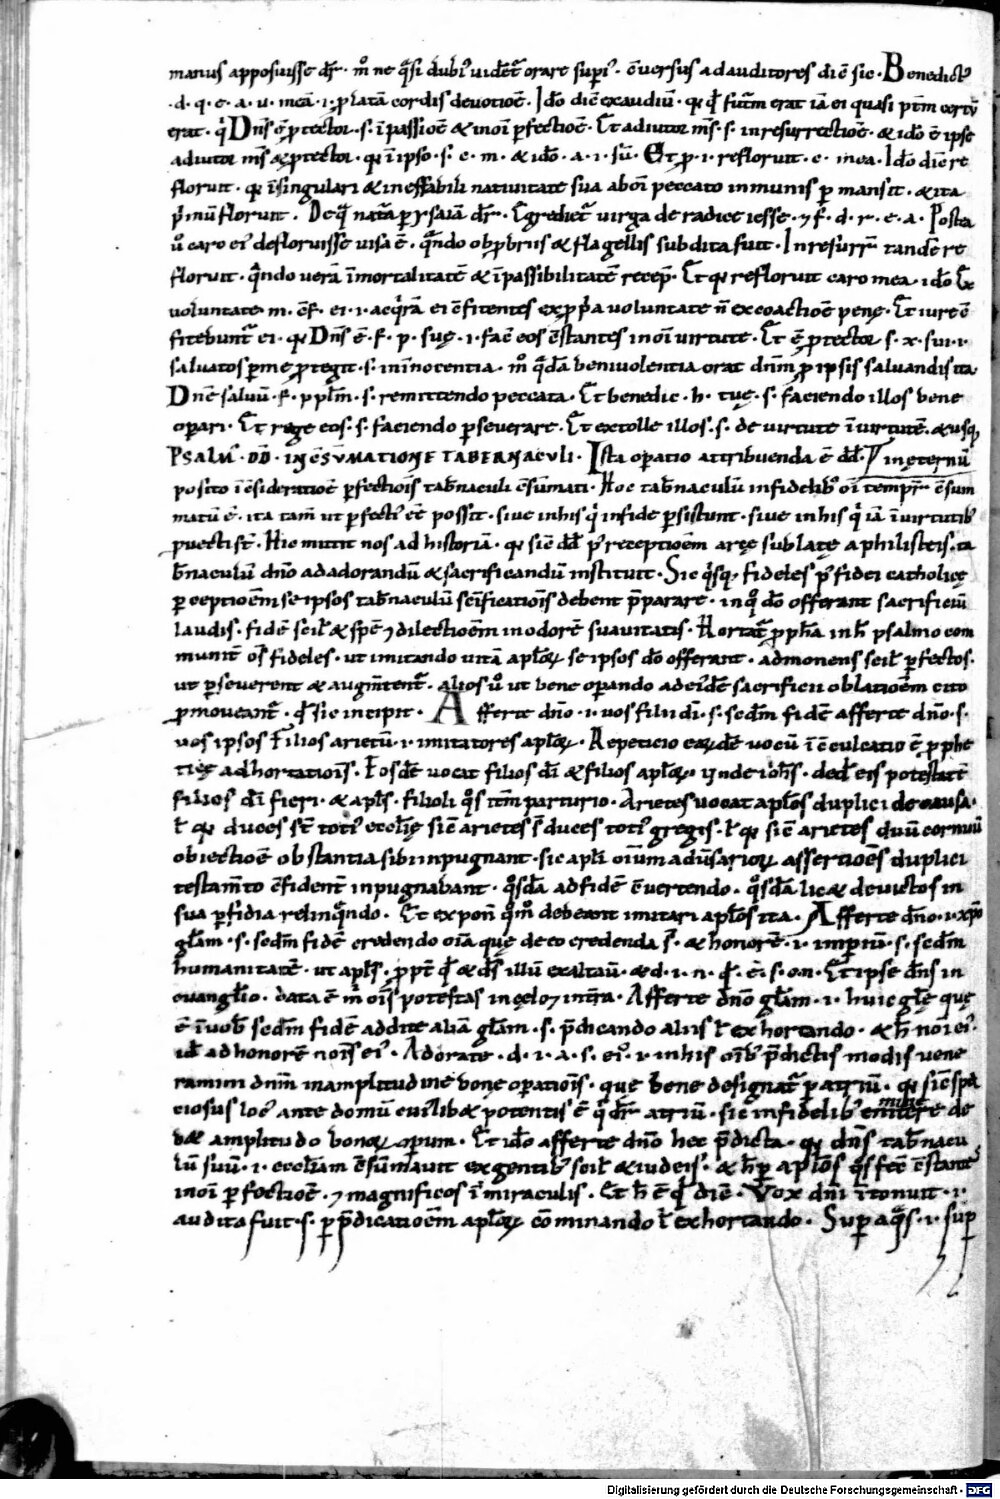 manus apposuisse dr̄ · m̊ ne q̄si dubi᷒ uidet᷑ orare sup̄i᷒ · ꝯuersus ad auditores dic̄ sic · Benedict᷒
· d · q · e · a · u · meā · i · p̱latā cordis deuotiōē · Ido dic̄ exaudiū · qꝛ qđ futm̄ erat iā ei quasi ptm̄ certū
erat · q̇ Dn̄s ē ꝓtector · s · ī passiōē & in oī ꝑfectiōē · Et adiutor ms̄ · s · in resurrectiōē · & ido ē ipse
adiutor ms̄ & ꝓtector · qꝛ in ipso · s · c · m · & ido · a · i · sū · Et ꝓ · i · refloruit · c · mea · Ido dic̄ re
floruit · qꝛ ī singulari & ineffabili natiuitate sua ab oī peccato inmunis ꝑmansit · & ita
p̄mū floruit · De q̄ nat̄a ꝑ ysaiā dr̄ · Egrediet᷑ uirga de radice iesse · ⁊ f · d · r · e · a · Postea
ů caro ei᷒ defloruisse uisa ē · q̄ndo obꝓbriis & flagellis subdita fuit · In resurr̄ tandē re
floruit · q̄ndo uerā īmortalitatē & īpassibilitatē recep̄ · Et qꝛ refloruit caro mea · ido Ex
uoluntate · m · ꝯf · ei · i · acq̇rā ei ꝯfitentes ex ꝓp̄a uoluntate n̄ ex coactiōē penę · Et iure ꝯ
fitebunt᷑ ei · qꝛ Dn̄s ē · f · p · suę · i · fac̄ eos ꝯstantes in oī uirtute · Et ē ꝓtector · s · x · sui · i ·
saluatos ꝑ me ꝓtegit · s · in innocentia · m̊ q̄dā beniuolentia orat dn̄m ꝓ ipsis saluandis ita
Dn̄e saluū · f · ppl̄m · s · remittendo peccata · Et benedic · h · tuę · s · faciendo illos bene
oꝑari · Et rege eos · s · faciendo ꝑseuerare · Et extolle illos · s · de uirtute ī uirtutē · & usqꝫ
PSALM᷒ · DD̄ · IN ꝯSVMATIONE TABERNACVLI · Ista oꝑatio attribuenda ē dd̄ · in ęternū
posito ī ꝯsideratiōē ꝑfectiōīs tab̄naculi ꝯsūmati · Hoc tab̄naculū in fidelib᷒ oī tempr̄ ꝯsum
matū ē · ita tam̄ ut ꝑfecti᷒ eē possit · siue in his q̇ in fide ꝑsistunt · siue in his q̇ iā ī uirtutib᷒
ꝓuecti sт̄ · Hic mittit nos ad historiā · qꝛ sic̄ dd̄ p᷒ receptiōēm arcę sublatę a philisteis · ta
b̄naculū dn̄o ad adorandū & sacrificandū instituit · Sic q̇sqꝫ fideles p᷒ fidei catholicę
ꝑceptiōēm se ipsos tab̄naculū scīficatiōīs debent p̄parare · in q̊ dō offerant sacrificiū
laudis · fidē scil̄ & spē ⁊ dilectiōēm in odorē suauitatis · Hortat᷑ ꝓph̄a in h̄ psalmo com
munit̄ oēs fideles · ut imitando uitā apl̄oꝝ se ipsos dō offerant · admonens scil̄ ꝑfectos ·
ut ꝑseuerent & augm̄tent᷑ · alios ů ut bene oꝑando ad eiꝰdē sacrificii oblatiōēm cito
ꝓmoueant᷑ · q̊ sic incipit · Afferte dn̄o · i · uos filii dī · s · scd̄m fidē afferte dn̄o · s ·
uos ipsos Filios arietū · i · imitatores apl̄oꝝ · Repeticio eaꝝdē uocū īculcatio ē ꝓphe
tię adhortatiōīs · Eosdē uocat filios dī & filios apl̄oꝝ · un̄de ioh̄s · dedit eis potestatē
filios dī fieri · & apl̄s · filioli q̊s itm̄ parturio · Arietes uocat apl̄os duplici de causa ·
ł qꝛ duces sт̄ toti᷒ ecclīę sic̄ arietes sт̄ duces toti᷒ gregis · ł qꝛ sic̄ arietes duū cornuū
obiectiōē obstantia sibi inpugnant · sic apl̄i oīum adu̅sarioꝝ assertiōēs duplici
testam̄to ꝯfident᷑ inpugnabant · q̊sdā ad fidē ꝯuertendo · q̊sdā lic& deuictos in
sua ꝑfidia relinq̄ndo · Et expon̄ qm̊ debeant imitari apl̄os ita · Afferte dn̄o · i · xp̄o
gl̄am · s · scd̄m fidē credendo oīa quę de eo credenda sт̄ · & honorē · i · imꝑiū · s · scd̄m
humanitatē · ut apl̄s · ꝓpt̄ qđ & ds̄ illū exaltauit · & d · i · n · qđ · ē · s · o · n · Et ipse dn̄s in
euangl̄io · data ē m̄ oīs potestas in cęlo ⁊ in tr̄a · Afferte dn̄o gl̄am · i · huic gl̄ę quę
ē ī uob̄ scd̄m fidē addite aliā gl̄am · s · p̄dicando aliis ł exhortando · & h̄ noī ei᷒ ·
id̄ ad honorē noīs ei᷒ · Adorate · d · i · a · s · ei᷒ · i · in his oīb᷒ p̄dictis modis uene
ramini dnm̄ in amplitudine bonę oꝑatiōīs · quę bene designat᷑ ꝑ atriū · qꝛ sic̄ spa
ciosus loc᷒ ante domū cuiꝰlib& potentis ē q̇ dr̄ atriū · sic in fidelib᷒ emi͏tere de
b& amplitudo bonoꝝ oꝑum · Et ido afferte dn̄o hec p̄dicta · qꝛ dn̄s tab̄nacu
lū suū · i · ecclīam ꝯsūmauit ex gentib᷒ scil̄ & iudeis · & h̄ ꝑ apl̄os q̊s fec̄ ꝯstantes
in oī ꝑfectiōē · ⁊ magnificos ī miraculis · Et h̄ ē qđ dic̄ · Vox dn̄i ītonuit · i ·
audita fuit · s · ꝑ p̄dicatiōēm apl̄oꝝ cōminando ł exhortando · Suꝑ aq̄s · i · suꝑ
Digitalisierung gefördert durch die Deutsche Forschungsgemeinschaft · DFG